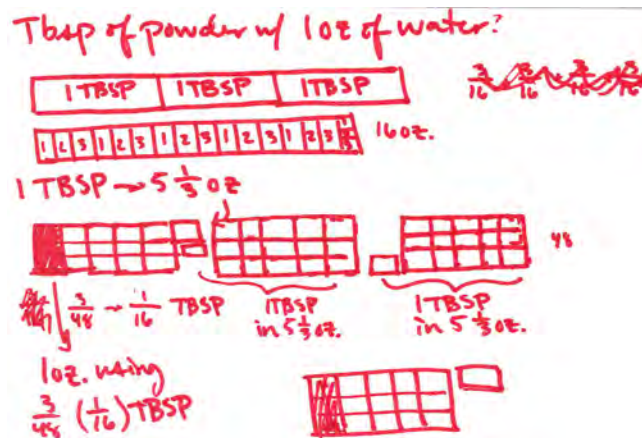 Tbsp of powder w/ 1oz of water?
1 TBSP 1 TBSP 1 TBSP
3/16 3/16 3/16 3/16
1 2 3 1 2 3 1 2 3 1 2 3 1 2 3 16oz.
1 TBSP → 5 1/3 oz
48
3/48 → 1/16 TBSP
1TBSP
in 5 1/3 oz.
1 TBSP
in 5 1/3 oz.
1oz. using
3/48 (1/16) TBSP